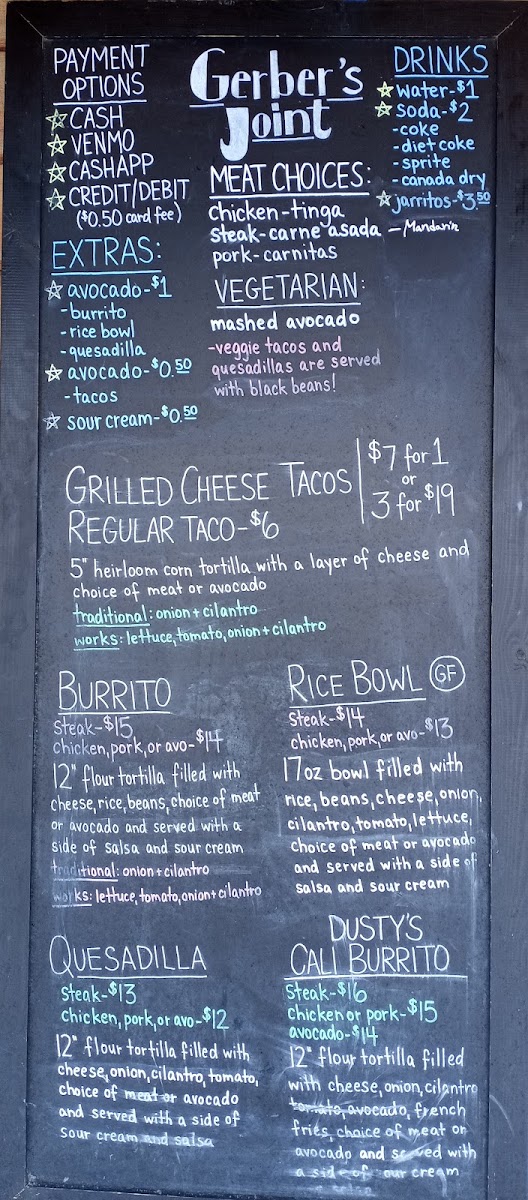 Gerber's
Joint
PAYMENT
OPTIONS
CASH
VENMO
CASHAPP
CREDIT/DEBIT
($0.50 card fee)
EXTRAS:
avocado-$1
-burrito
-rice bowl
-quesadilla
avocado-$0.50
-tacos
sour cream-$0.50
MEAT CHOICES:
chicken-tinga
steak-carne asada
pork-carnitas
VEGETARIAN:
mashed avocado
-veggie tacos and
quesadillas are served
with black beans!
DRINKS
water-$1
soda-$2
-coke
-diet coke
-sprite
-canada dry
jarritos-$3.50
-Mandarin
GRILLED CHEESE TACOS
$7 for 1
or
3 for $19
REGULAR TACO-$6
5" heirloom corn tortilla with a layer of cheese and
choice of meat or avocado
traditional: onion + cilantro
works: lettuce, tomato, onion + cilantro
BURRITO
steak-$15,
chicken, pork, or avo-$14
12" flour tortilla filled with
cheese, rice, beans, choice of meat
or avocado and served with a
side of salsa and sour cream
traditional: onion + cilantro
works: lettuce, tomato, onion + cilantro
RICE BOWL GF
steak-$14
chicken, pork, or avo-$13
17oz bowl filled with
rice, beans, cheese, onion,
cilantro, tomato, lettuce,
choice of meat or avocado
and served with a side of
salsa and sour cream
QUESADILLA
steak-$13
chicken, pork, or avo-$12
12" flour tortilla filled with
cheese, onion, cilantro, tomato,
choice of meat or avocado
and served with a side of
sour cream and salsa
DUSTY'S
CALI BURRITO
steak-$16
chicken or pork-$15
avocado-$14
12" flour tortilla filled
with cheese, onion, cilantro
tomato, avocado, french
fries, choice of meat or
avocado and served with
a side of sour cream